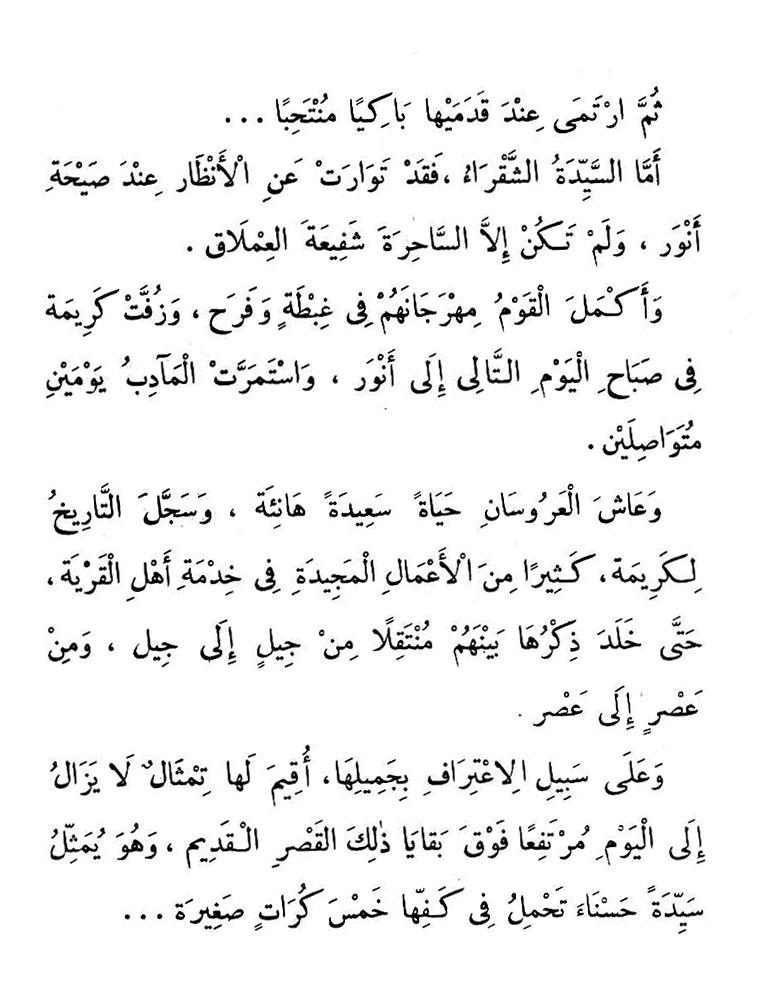 ثُمَّ ارْتَمَى عِنْدَ قَدَمَيْها بَاكِيًا مُنْتَحِبًا ...
أَمَّا السَّيِّدَةُ الشَّقْرَاءُ ، فَقَدْ تَوَارَتْ عَنِ الْأَنْظَار عِنْدَ صَيْحَةِ
أَنْوَر ، وَلَمْ تَكُنْ إِلاَّ السَّاحِرَةَ شَفِيعَةَ العِمْلَاق .
وَأَكْمَلَ الْقَوْمُ مِهْرَجَانَهُمْ فِى غِبْطَةٍ وَفَرَح ، وَزُفَّتْ كَرِيمَة
فِى صَبَاحِ الْيَوْمِ التَّالِى إِلَى أَنْوَر ، وَاسْتَمَرَّتْ الْمَآدِبُ يَوْمَيْنِ
مُتَوَاصِلَيْن .
وَعَاشَ الْعَرُوسَانِ حَيَاةً سَعِيدَةً هَانِئَة ، وَسَجَّلَ التَّارِيخُ
لِكَرِيمَة ، كَثِيرًا مِنَ الْأَعْمَالِ الْمَجِيدَةِ فِى خِدْمَةِ أَهْلِ الْقَرْيَة ،
حَتَّى خَلَدَ ذِكْرُهَا بَيْنَهُمْ مُنْتَقِلًا مِنْ جِيلٍ إِلَى جِيل ، وَمِنْ
عَصْرٍ إِلَى عَصْر .
وَعَلَى سَبِيلِ الِاعْتِرَافِ بِجَمِيلِهَا ، أُقِيمَ لَها تِمْثَالٌ لَا يَزَالُ
إِلَى الْيَوْمِ مُرْتَفِعًا فَوْقَ بَقايَا ذٰلِكَ القَصْرِ الْقَدِيم ، وَهُوَ يُمَثِّلُ
سَيِّدَةً حَسْنَاءَ تَحْمِلُ فِى كَفِّها خَمْسَ كُرَاتٍ صَغِيرَة ...